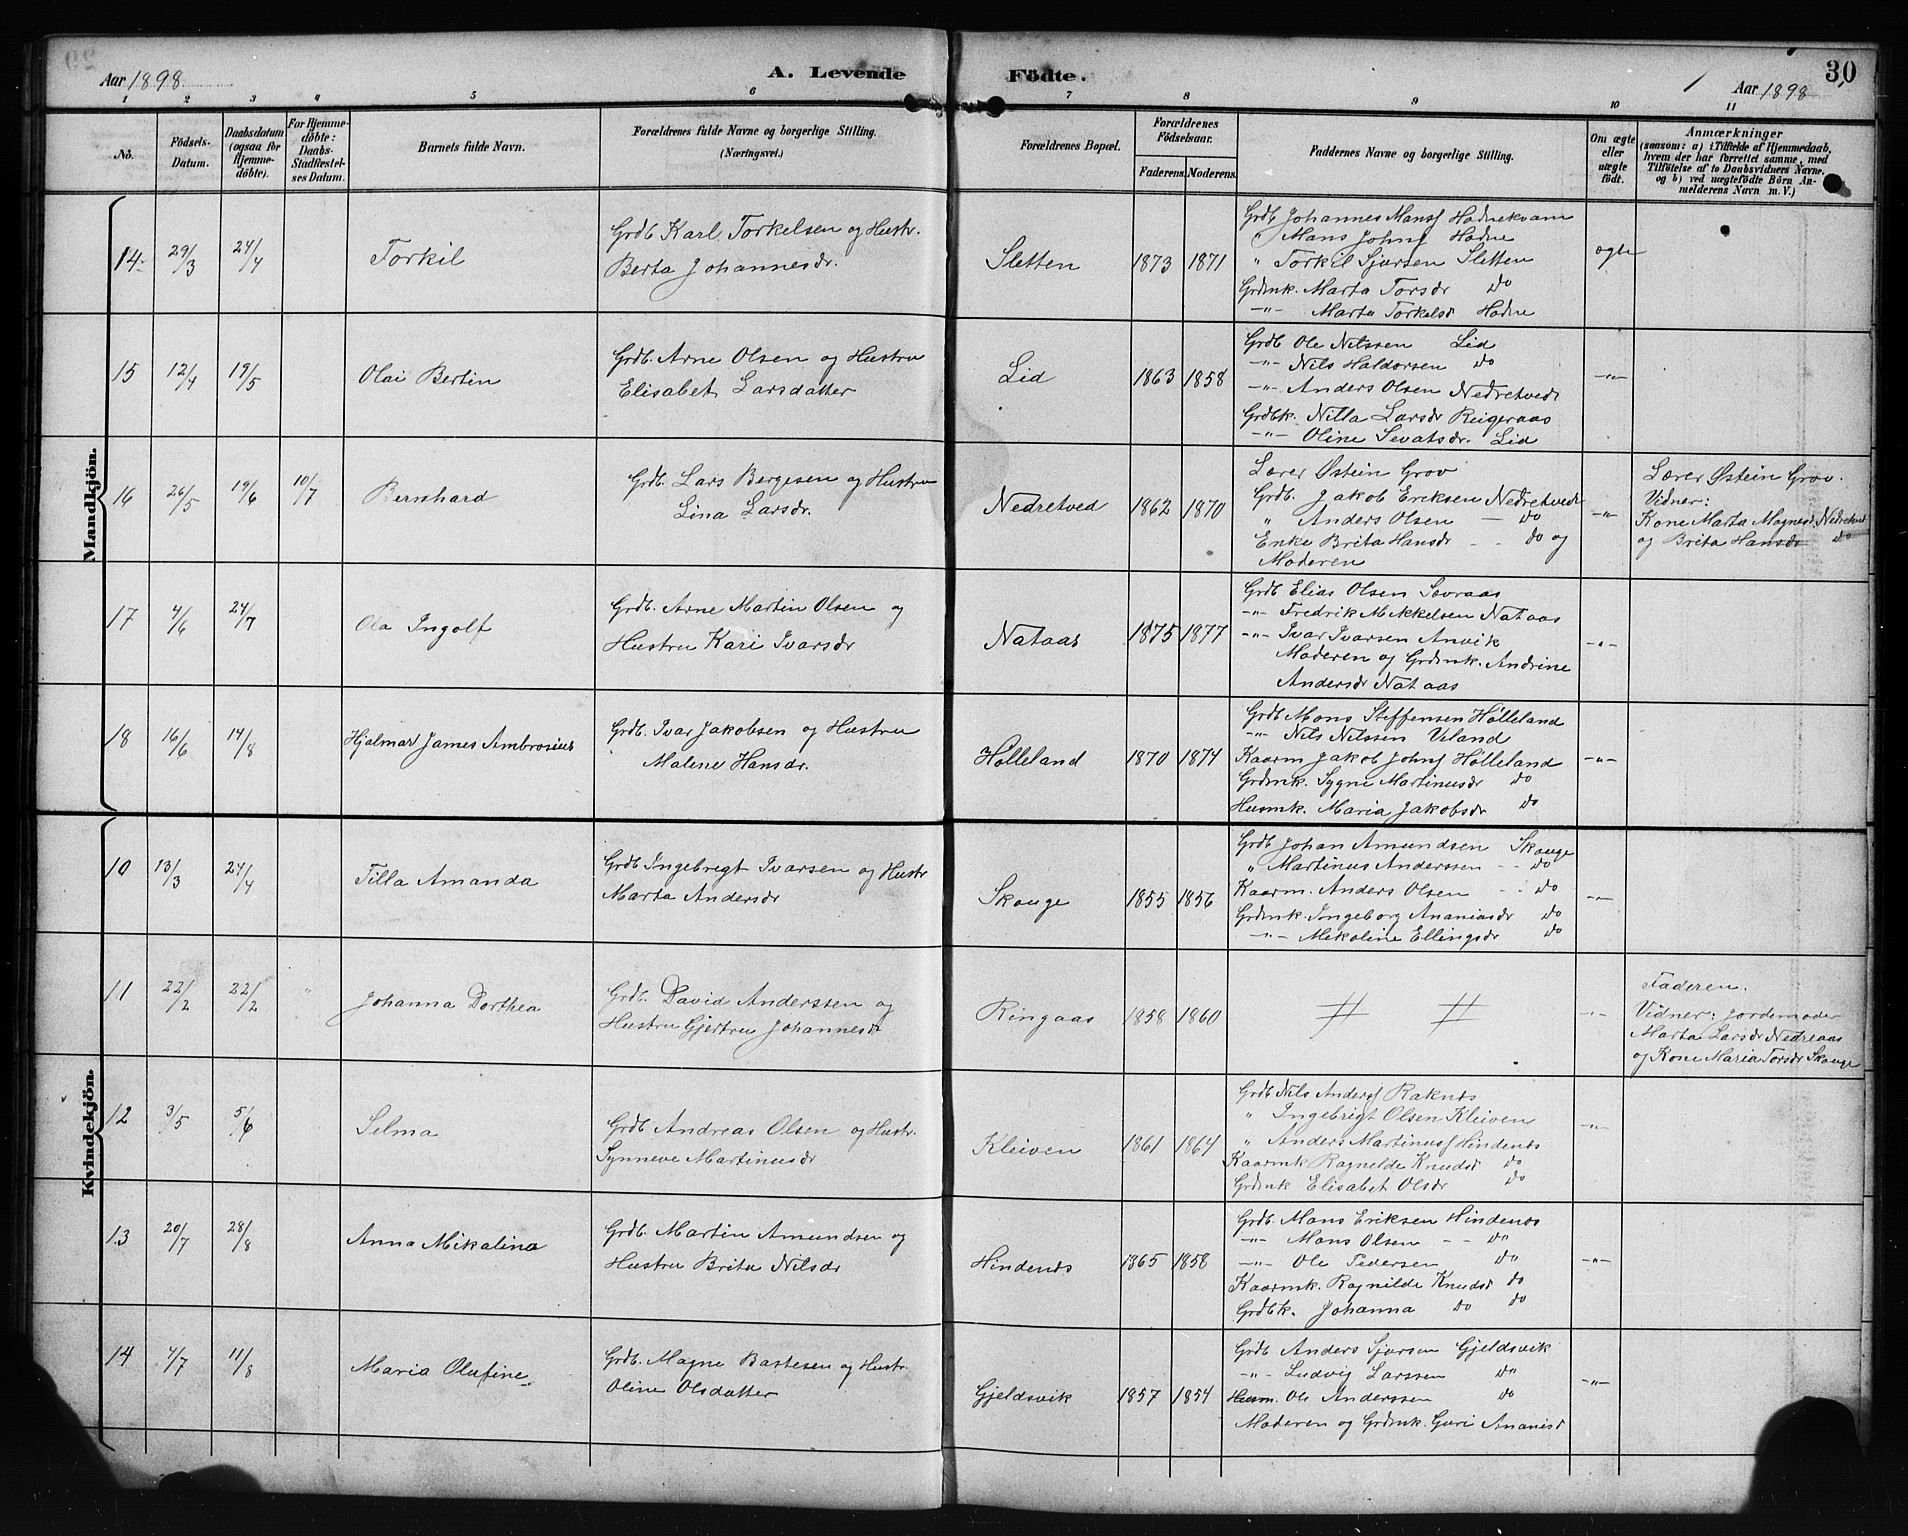 Aar 1898
A. Levende Födte.
Aar 1898
30
1 2 3 4 5 6 7 8 9 10 11
No.
Födsels-Datum.
Daabsdatum (ogsaa for Hjemme-döbte).
For Hjemme-döbte: Daabs-Stadfæstel-ses Datum.
Barnets fulde Navn.
Forældrenes fulde Navne og borgerlige Stilling.
(Næringsvei.)
Forældrenes Bopæl.
Forældrenes Födselsaar.
Faderens. Moderens.
Faddernes Navne og borgerlige Stilling.
Om ægte eller uægte födt.
Anmærkninger
(saasom: a) i Tilfælde af Hjemmedaab, hvem der har forrettet samme, med Tilföielse af to Daabsvidners Navne. og b) ved uægtefödte Börn An-melderens Navn m. V.)
Mandkjön.
14
29/3
24/4
Torkil
Grdb Karl Torkelsen og Hustr.
Berta Johannesdr.
Sletten
1873 1871
Grdb Johannes Mansf Hodnekvam
" Mons Johnf Hodne
" Torkil Sjursen Sletten
Grdmk. Marta Torsdr Do
-"- Marta Torkelsd Hodne
ægte
15
12/4
19/5
Olai Bertin
Grdb. Arne Olsen og Hustru
Elisabet Larsdatter
Lid
1863 1858
Grdb Ole Nilssen Lid
-"- Nils Haldorsen Do
-"- Anders Olsen Nedretvedt
Grdbk. Nilla Larsdr Reigeraas
-"- Oline Sevatsdr. Lid
-"-
16
26/5
19/6
10/7
Bernhard
Grdb. Lars Bergesen og Hustru
Lina Larsdr.
Nedretved
1862 1870
Lærer Østein Grov
Grdb. Jakob Eriksen Nedretvedt
" Anders Olsen - Do
Enke Brita Hansdr - - Do og
Moderen
-"-
Lærer Østein Grov.
Vidner:
Kone Marta Magnesd. Nedretved
og Brita Hansdr Do
17
4/6
24/7
Ola Ingolf
Grdb. Arne Martin Olsen og
Hustru Kari Ivarsdr
Nataas
1875 1877
Grdb Elias Olsen Sævraas
-"- Fredrik Mikkelsen Nataas
-"- Ivar Ivarsen Anvik
Moderen og Grdmk. Andrine
Andersdr Nataas
-"-
18
16/6
14/8
Hjalmar James Ambrosius
Grdb. Ivar Jakobsen og Hustru
Malene Hansdr.
Hølleland
1870 1874
Grdb Mons Steffensen Hølleland
-"- Nils Nilssen Veland
Kaarm Jakob Johnf Hølleland
Grdmk. Sygne Martinusdr Do
Husmk. Maria Jakobsdr Do
-"-
Kvindekjön.
10
13/3
24/4
Tilla Amanda
Grdb Ingebrigt Ivarsen og Hustr
Marta Andersdr
Skauge
1855 1856
Grdb Johan Amundsen Skauge
" Martinus Anderssen - - Do
Kaarm. Anders Olsen - - Do
Grdmk. Ingeborg Ananiasdr Do
-"- Mikaline Ellingsdr Do
-"-
11
22/2
22/2
"
Johanna Dorthea
Grdb. David Anderssen og
Hustru Gjertru Johannesdr
Ringaas
1858 1860
-"-
Faderen.
Vidner: Jordemoder
Marta Larsdr Nedreaas
og Kone Maria Torsdr Skauge
12
3/5
5/6
Selma
Grdb Andreas Olsen og Hustr.
Synneve Martinusdr
Kleiven
1861 1864
Grdb Nils Andersf Raknes
" Ingebrigt Olsen Kleiven
" Anders Martinusf Hindenes
Kaarmk Ragnilde Knudsd Do
Grdmk Elisabet Olsdr Do
-"-
13
20/7
28/8
Anna Mikalina
Grdb. Martin Amundsen og
Hustru Brita Nilsdr
Hindenes
1865 1858
Grdb. Mons Eriksen Hindenes
-"- Mons Olsen - - Do
-"- Ole Pedersen Do
Kaarmk. Ragnilde Knudsd Do
Grdbk. Johanna Do Do
-"-
14
4/7
11/8
Maria Olufine
Grdb. Magne Bastesen og Hustr.
Oline Olsdatter
Gjeldsvik
1857 1854
Grdb Anders Sjursen Gjeldsvik
-"- Ludvig Larssen Do
Husm. Ole Anderssen Do
Moderen og Grdmk. Guri Ananisd
-"-